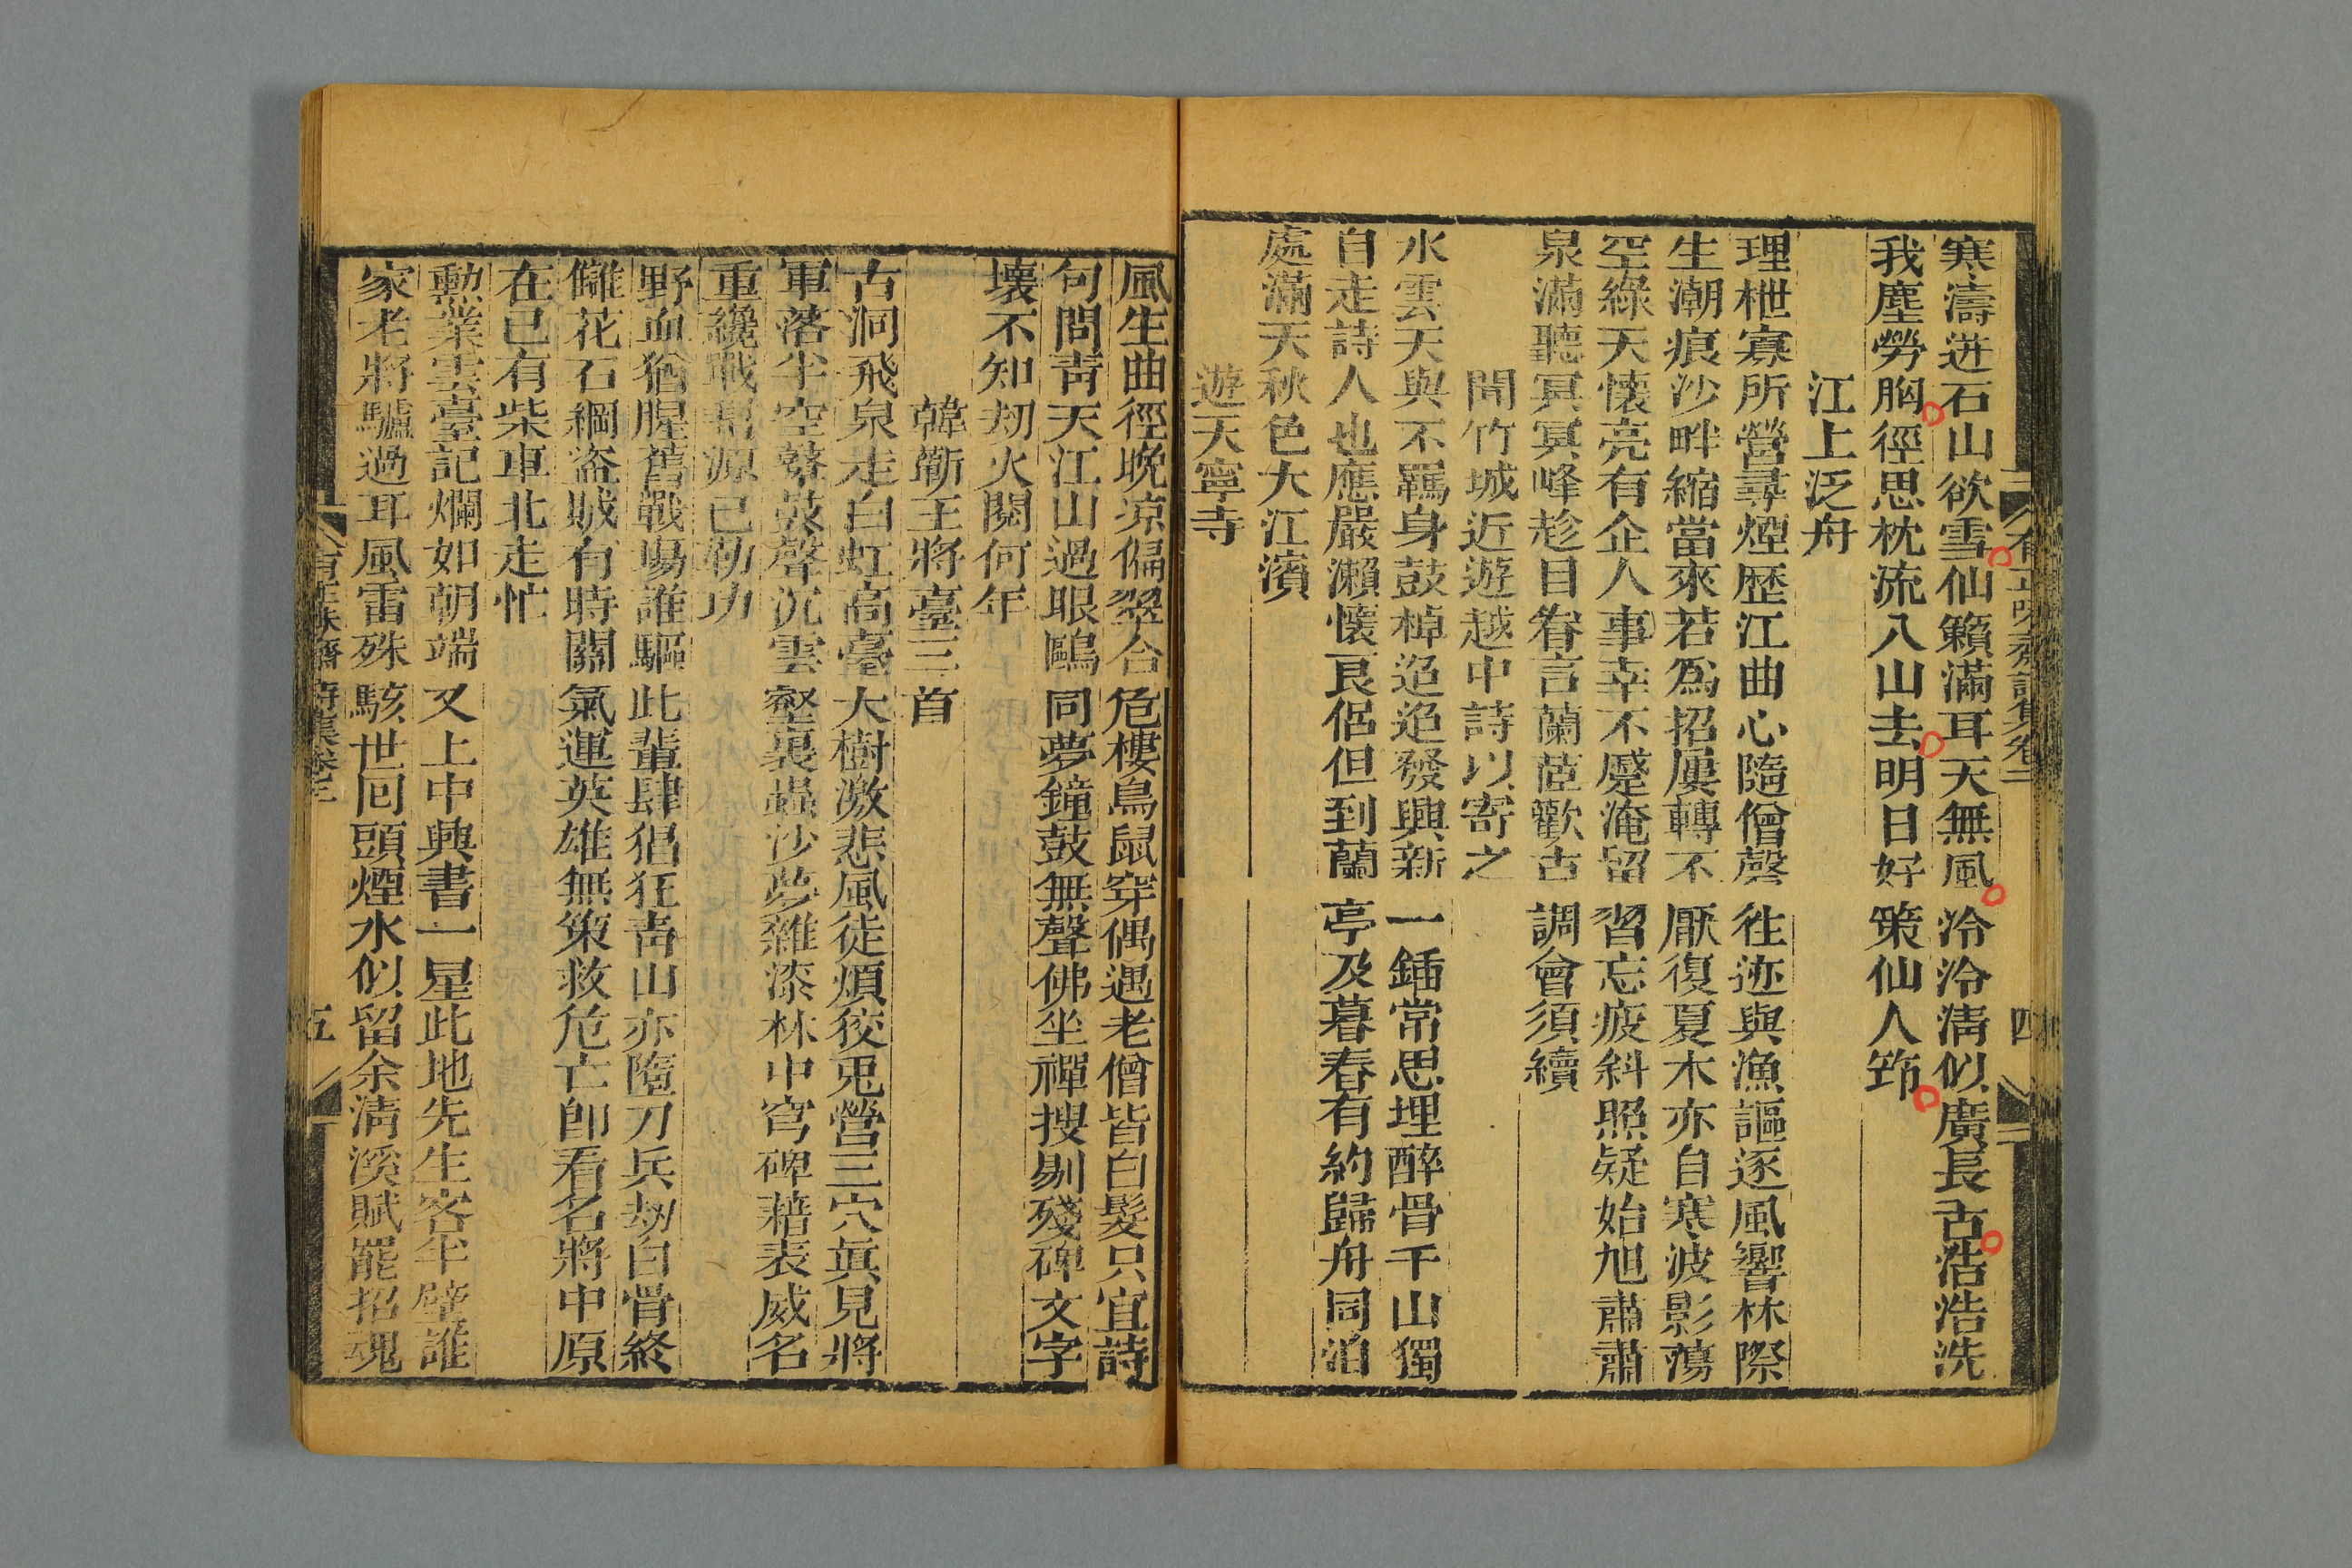 寒濤迸石山欲雪仙籟滿耳天無風泠泠清似廣長舌浩浩洗
我塵勞胸徑思枕流入山去明日好策仙人筇
江上泛舟
理枻寡所營尋煙歷江曲心隨僧磬往迹與漁謳逐風響林際
生潮痕沙畔縮當來若爲招屢轉不厭復夏木亦自寒波影蕩
空綠天懷亮有企人事幸不蹙淹留習忘疲斜照疑始旭肅肅
泉滿聽冥冥峰趁目眷言蘭茝歡古調會須續
聞竹城近遊越中詩以寄之
水雲天與不羈身鼓棹迢迢發興新一鍤常思埋醉骨千山獨
自走詩人也應嚴瀨懷良侶但到蘭亭及暮春有約歸舟同泊
處滿天秋色大江濱
遊天寧寺
四
風生曲徑晚凉偏翠合危樓鳥鼠穿偶遇老僧皆白髮只宜詩
句問靑天江山過眼鷗同夢鐘鼓無聲佛坐禪搜剔殘碑文字
壞不知刼火閱何年
韓蘄王將臺三首
古洞飛泉走白虹高臺大樹激悲風徒煩狡兎營三穴眞見將
軍落半空鼙鼓聲沉雲壑裏蟲沙夢雜漆林中穹碑藉表威名
重纔戰桃源已勒功
野血猶腥舊戰場誰驅此輩肆猖狂靑山亦墮刀兵刼白骨終
讎花石綱盜賊有時關氣運英雄無策救危亡卽看名將中原
在已有柴車北走忙
勳業雲臺記爛如朝端又上中興書一星此地先生客半壁誰
家老將驢過耳風雷殊駭世回頭煙水似留余淸溪賦罷招魂
五